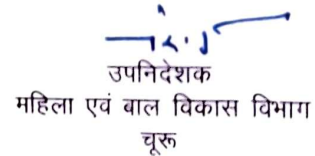 उपनिदेशक
महिला एवं बाल विकास विभाग
चूरू